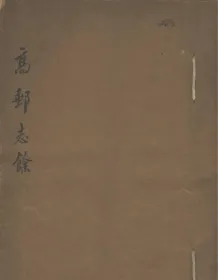 高郵志餘